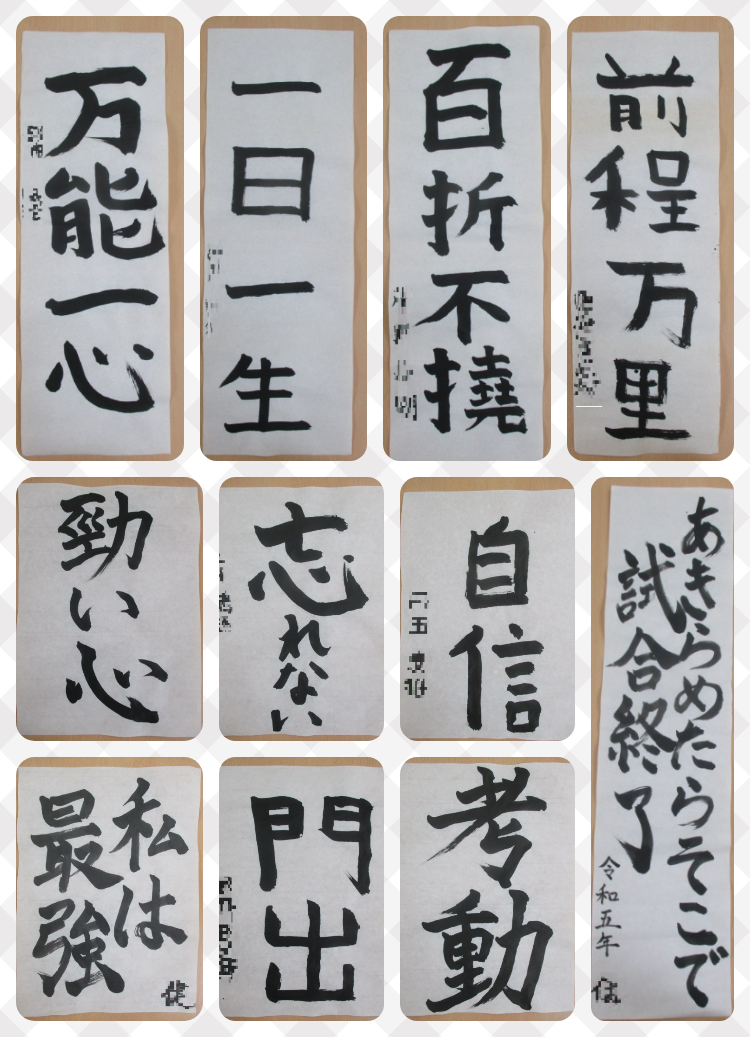 万能一心
一日一生
百折不撓
前程万里
勁い心
忘れない
自信
あきらめたらそこで
試合終了
令和五年
私は
最強
門出
考動